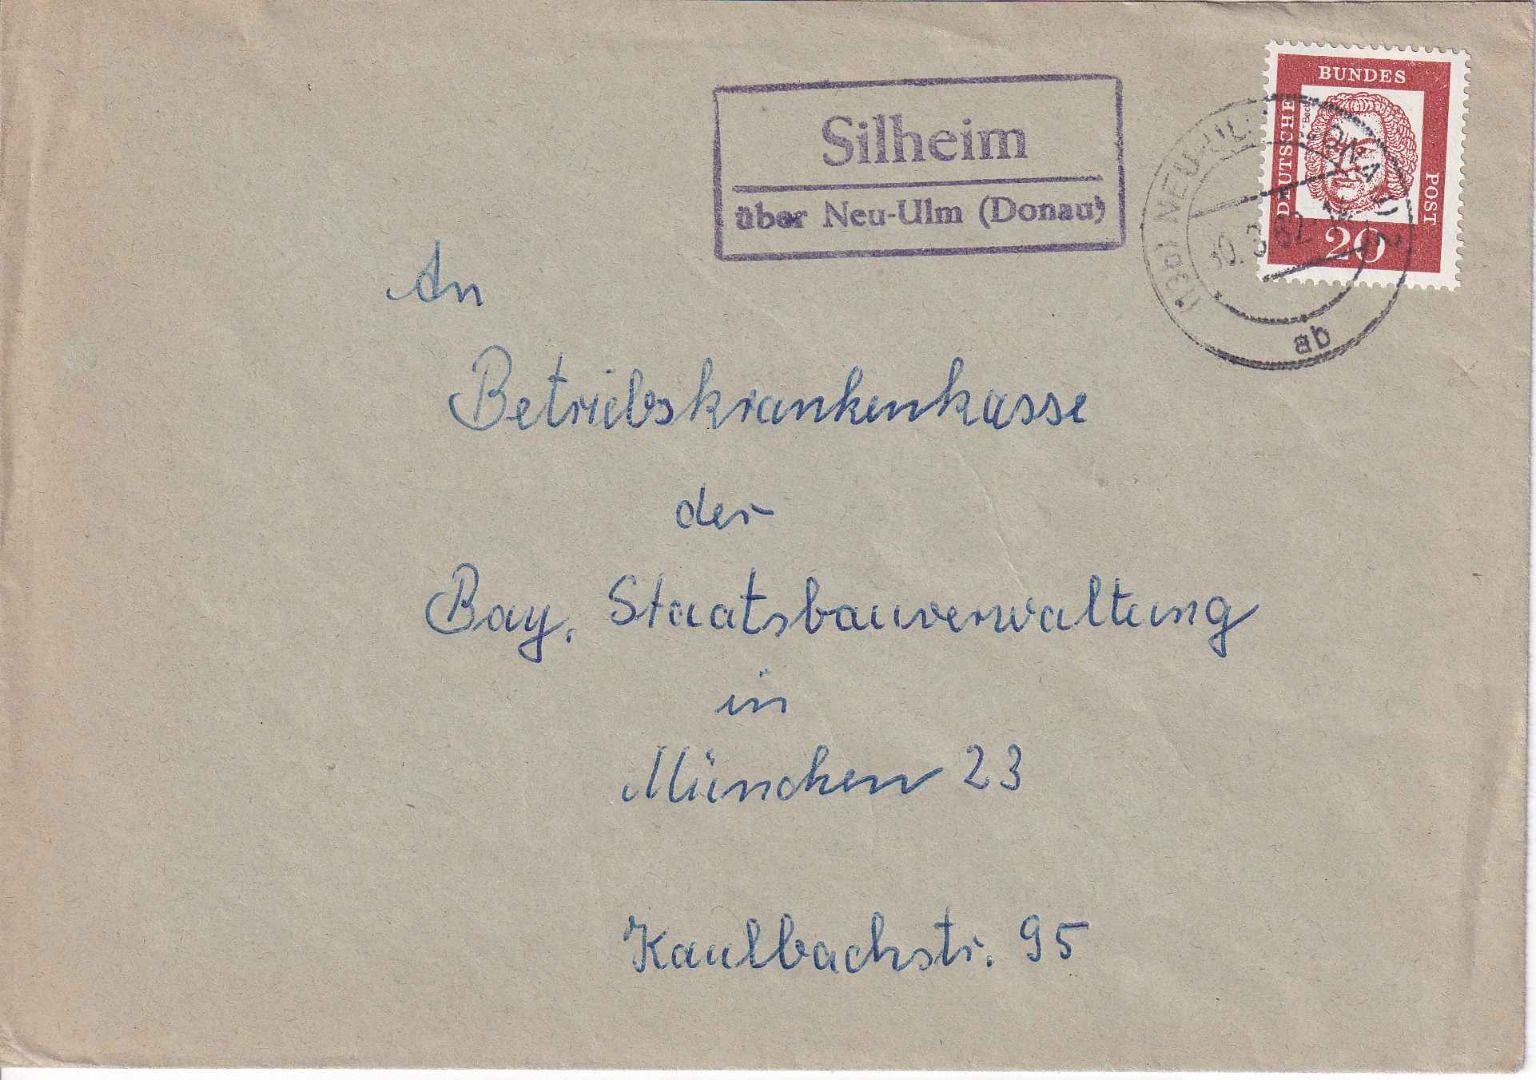 Silheim
über Neu-Ulm (Donau)
BUNDES
DEUTSCHE
POST
20
(13b) NEU-ULM (DONAU) 2
30.3.62
ab
An
Betriebskrankenkasse
der
Bay. Staatsbauverwaltung
in
München 23
Kaulbachstr. 95